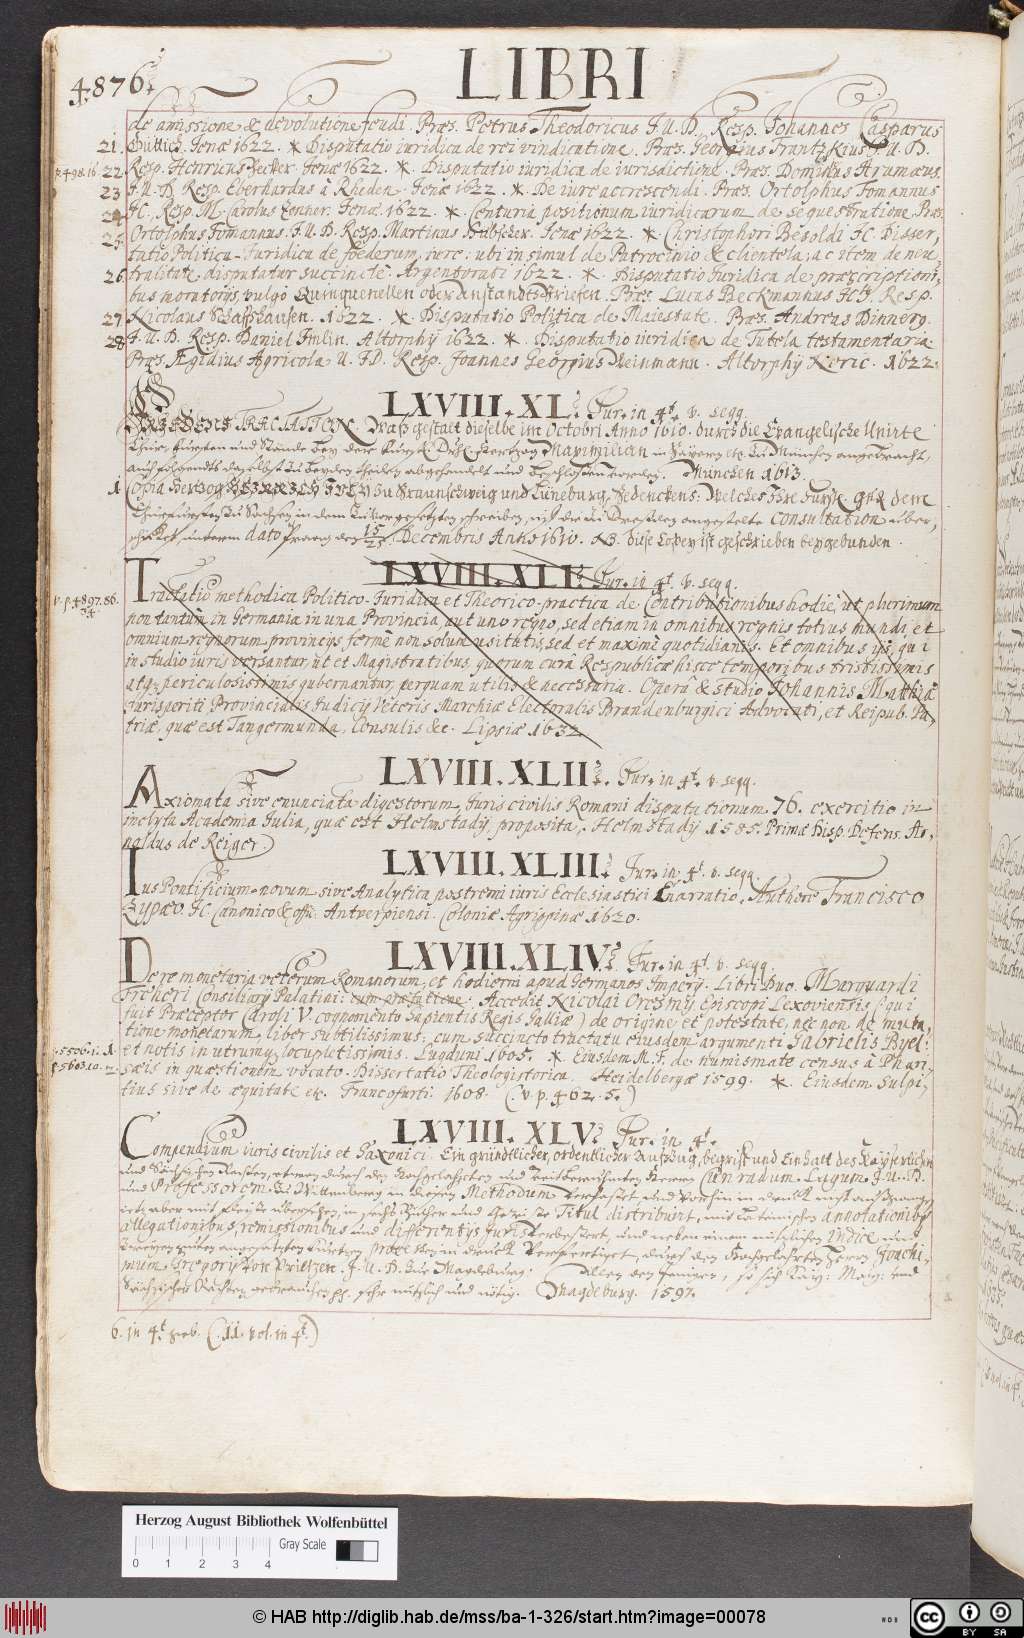 4876.
LIBRI
de amissione & devolutione feudi. Præs. Petrus Theodoricus J. U. D. Resp. Johannes Casparus
21. Güttich. Jenæ 1622. * Disputatio iuridica de rei vindicatione. Præs. Georgius Frantzkius J. U. D.
22. Resp. Henricus Becker. Jenæ 1622. * Disputatio iuridica de iurisdictione. Præs. Dominicus Arumæus.
23 J. U. D. Resp. Eberhardus à Rheden. Jenæ 1622. * De iure accrescendi. Præs. Ortolphus Fomannus
24. JC. Resp. M. Carolus Jenner. Jenæ 1622. * Centuria positionum iuridicarum de sequestratione, Præs.
25. Ortolphus Fomannus. J. U. D. Resp. Martinus Hübscher. Jenæ 1622. * Christophori Besoldi JC. Disser,
tatio Politica-Juridica de foederum iure: ubi in simul de Patrocinio & clientela; ac item de neu,
26. tralitate, disputatur succinctè. Argentorati 1622. * Disputatio Juridica de præscriptioni,
bus moratorijs, vulgò Quinquenellen oder Anstandts Briefen. Præs. Lucas Beckmannus JCt. Resp.
27. Nicolaus Schaffshausen. 1622. * Disputatio Politica de Maiestate. Præs. Andreas Dinnerg.
28 J. U. D. Resp. Daniel Imlin. Altorphij 1622. * Disputatio iuridica de Tutela testamentaria.
Præs. Ægidius Agricola U. J. D. Resp. Joannes Georgius Weinmann. Altorphij Noric. 1622.
LXVIII. XL. Jur. in 4t. v. segg.
TRACTATION. Waß gestalt dieselbe im Octobri Anno 1610. durch die Evangelische Unirte
Chur, Fürsten und Stände bey der Fürstl. Dhl. Hertzog Maximilian in Bayern etc. zu München angebracht,
auch folgendts daselbst zu beyden theilen abgehandelt und beschlossen worden. München 1613.
1 Copia Hertzog HEINRICH zu Braunschweig und Lüneburg, Bedenckens. Welches Ihre Fürstl. Gn. dem
Churfürsten zu Sachsen in dem schreiben, auf die zu Dreßden angestelte Consultation über,
schicket, unterm dato Praag den 15/25 Decembris Anno 1610. NB. diese Copey ist geschrieben beygebunden.
LXVIII. XLI. Jur. in 4t. v. segg.
v. p. 4897. 86. Tractatio methodica Politico-Juridica et Theorico-practica de Contributionibus hodiè, ut plurimum
non tantùm in Germania in una Provincia aut uno regno, sed etiam in omnibus regnis totius mundi, et
omnium regnorum provincijs fermè non solum usitatis, sed et maximè quotidianis. Et omnibus ijs, qui
in studio iuris versantur, ut et Magistratibus quorum curâ Respublicæ hisce temporibus tristissimis
atq; periculosissimis gubernantur, perquam utilis & necessaria. Operâ & studio Johannis Matthiæ
Jurisperiti Provincialis Judicij Veteris Marchiæ Electoralis Brandenburgici Advocati, et Reipub. Pa,
triæ, quæ est Tangermunda, Consulis &c. Lipsiæ 1632.
LXVIII. XLII. Jur. in 4t. v. segg.
Axiomata sive enunciata digestorum Juris civilis Romani disputationum 76. exercitio in
inclyta Academia Julia, quæ est Helmstadij, proposita. Helmstadij 1585. Primæ Disp. Defens. Ar,
noldus de Reiger.
LXVIII. XLIII. Jur. in 4t. v. segg.
Ius Pontificium novum sive Analytica postremi iuris Ecclesiastici Enarratio, Authore Francisco
Zypæo JC. Canonico & offic. Antverpiensi. Coloniæ Agrippinæ 1620.
LXVIII. XLIV. Jur. in 4t. v. segg.
De re monetaria veterum Romanorum, et hodierni apud Germanos Imperij. Libri Duo. Marquardi
Freheri Consiliarij Palatini: cum præfatione. Accedit Nicolai Oresmij Episcopi Lexoviensis (qui
fuit Præceptor Caroli V. cognomento Sapientis Regis Galliæ) de origine et potestate, nec non de muta,
tione monetarum, liber subtilissimus; cum succincto tractatu eiusdem argumenti Gabrielis Byel:
p. 5506. 1. 1. et notis in utrumq; locupletissimis. Lugduni 1605. * Eiusdem M. F. de numismate census à Phari,
p. 5603. 10. 2. sæis in quæstionem vocato. Dissertatio Theologistorica. Heidelbergæ 1599. * Eiusdem Sulpi,
tius sive de æquitate etc. Francofurti. 1608. (v. p. 462. 5.)
LXVIII. XLV. Jur. in 4t.
Compendium iuris civilis et Saxonici. Ein gründtlicher, ordentlicher Außzug, begriff und Einhalt des Kayserlichen
und Sächsischen Rechten, etwan durch den Hochgelahrten und weitberühmten Herrn Cunradum Lagum J. U. D.
und Professorem zu Wittenberg in diesen Methodum verfasset und vorhin in druck nicht außgangen
ietzt aber mit fleiß übersehen, in sechs Bücher und Titul distribuirt, mit Lateinischen annotationibus
allegationibus, remissionibus und differentijs Juris verbessert, und neben einem nützlichen Indice und
zweyen angehengten kurtzen Process in druck verfertiget, durch den Hochgelehrten Herrn Joachi,
mum Gregory von Pritzen. J. U. D. zu Magdeburg. Allen den Jenigen, so sich Kay: May: und
Sächsischen Rechten gebrauchen sehr nützlich und nötig. Magdeburg. 1597.
6. in 4t (11. vol. in 4t.)
Herzog August Bibliothek Wolfenbüttel
Gray Scale
0 1 2 3 4
© HAB http://diglib.hab.de/mss/ba-1-326/start.htm?image=00078
WDB
cc BY SA